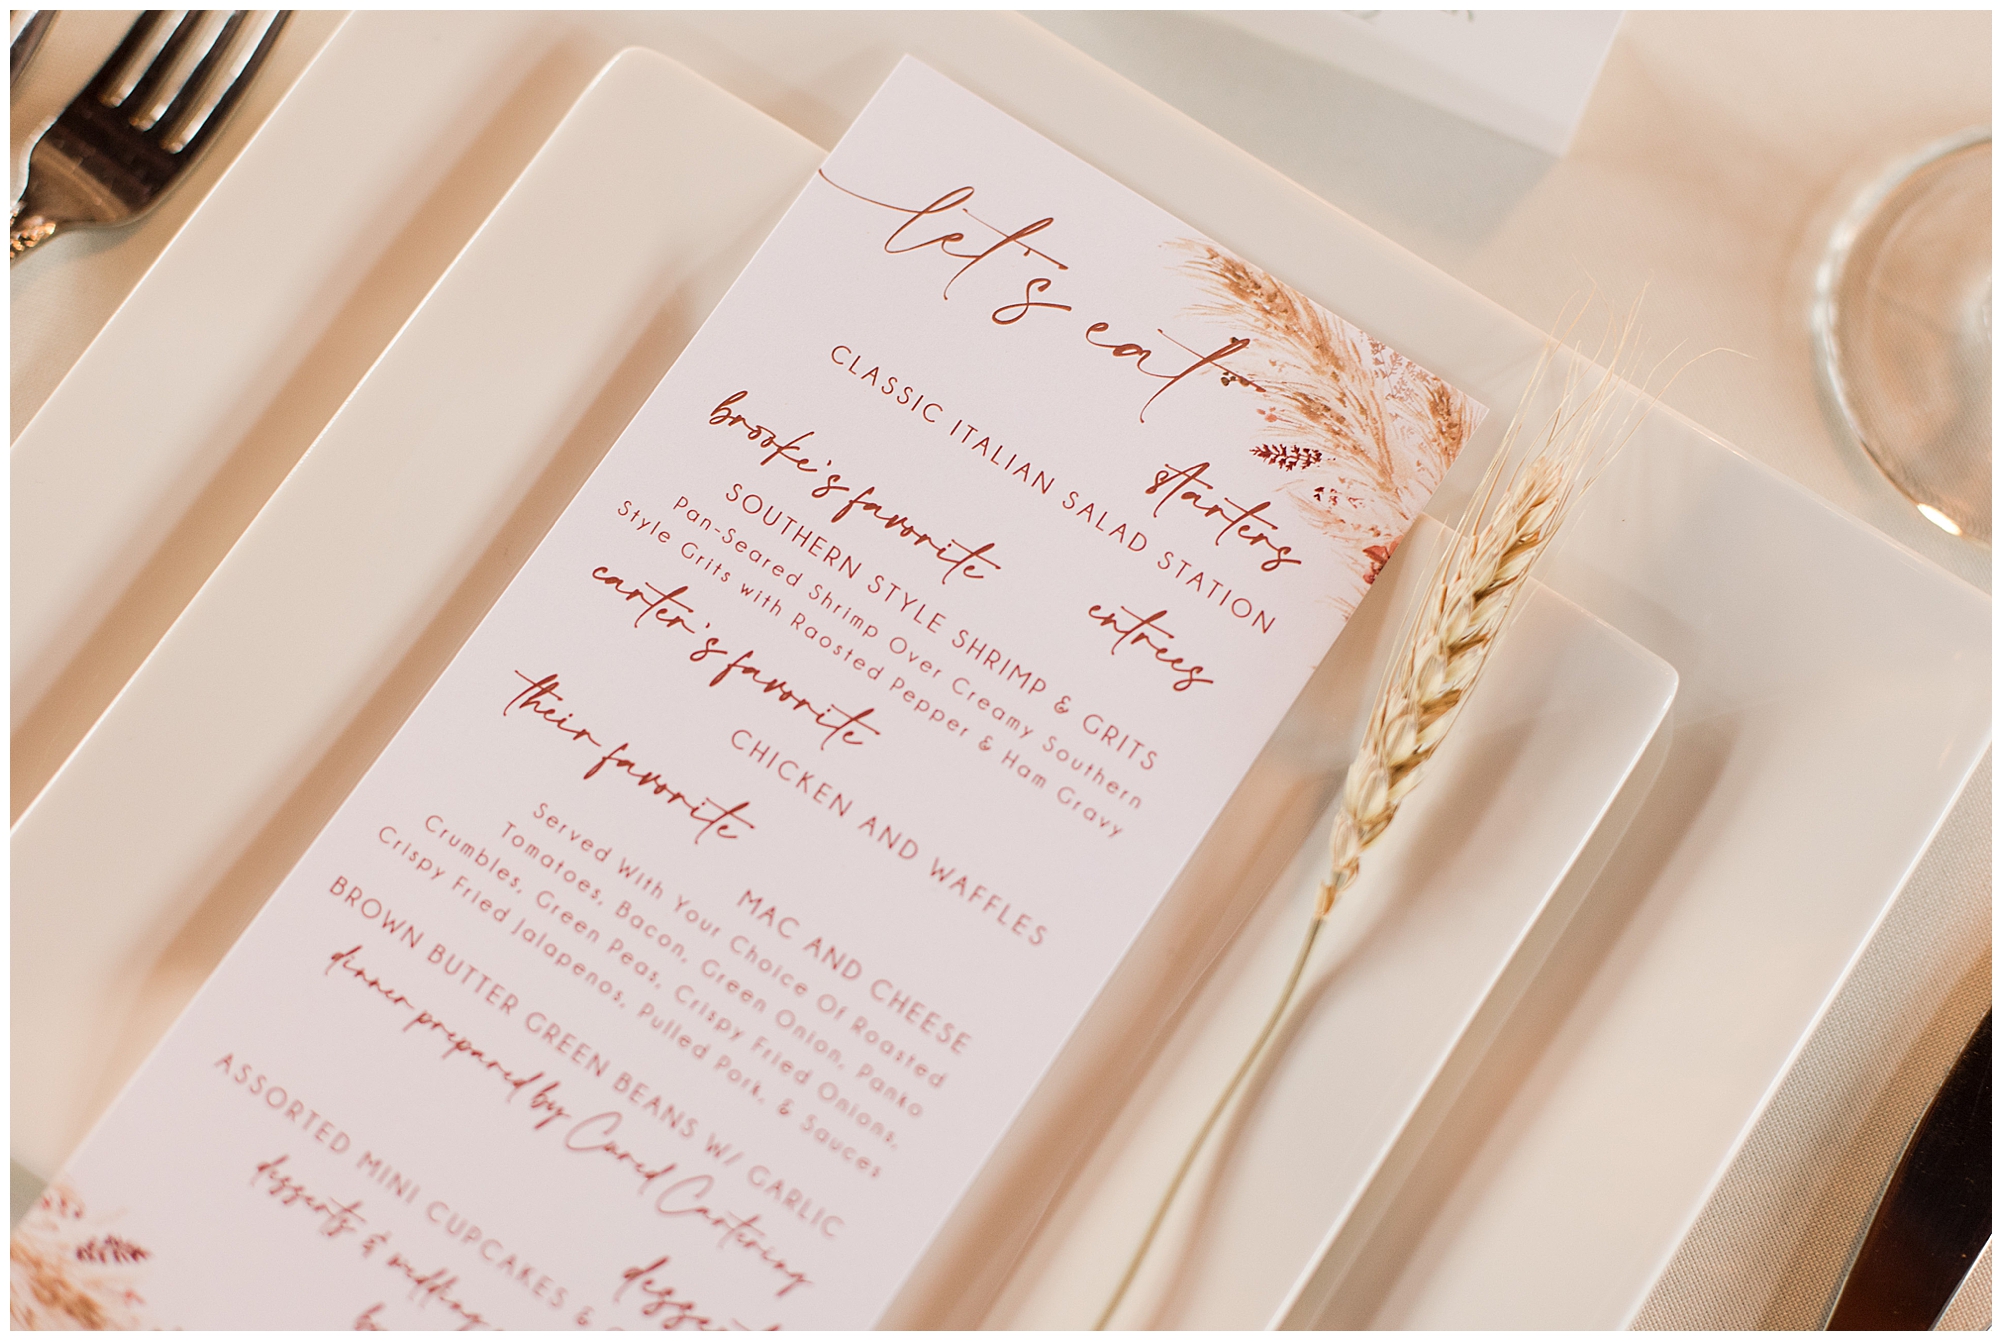 let's eat
starters
CLASSIC ITALIAN SALAD STATION
entrees
brooke's favorite
SOUTHERN STYLE SHRIMP & GRITS
Pan-Seared Shrimp Over Creamy Southern
Style Grits with Raosted Pepper & Ham Gravy
carter's favorite
CHICKEN AND WAFFLES
their favorite
MAC AND CHEESE
Served With Your Choice Of Roasted
Tomatoes, Bacon, Green Onion, Panko
Crumbles, Green Peas, Crispy Fried Onions,
Crispy Fried Jalapenos, Pulled Pork, & Sauces
BROWN BUTTER GREEN BEANS W/ GARLIC
dinner prepared by Cared Cartering
ASSORTED MINI CUPCAKES &
desserts & wedding